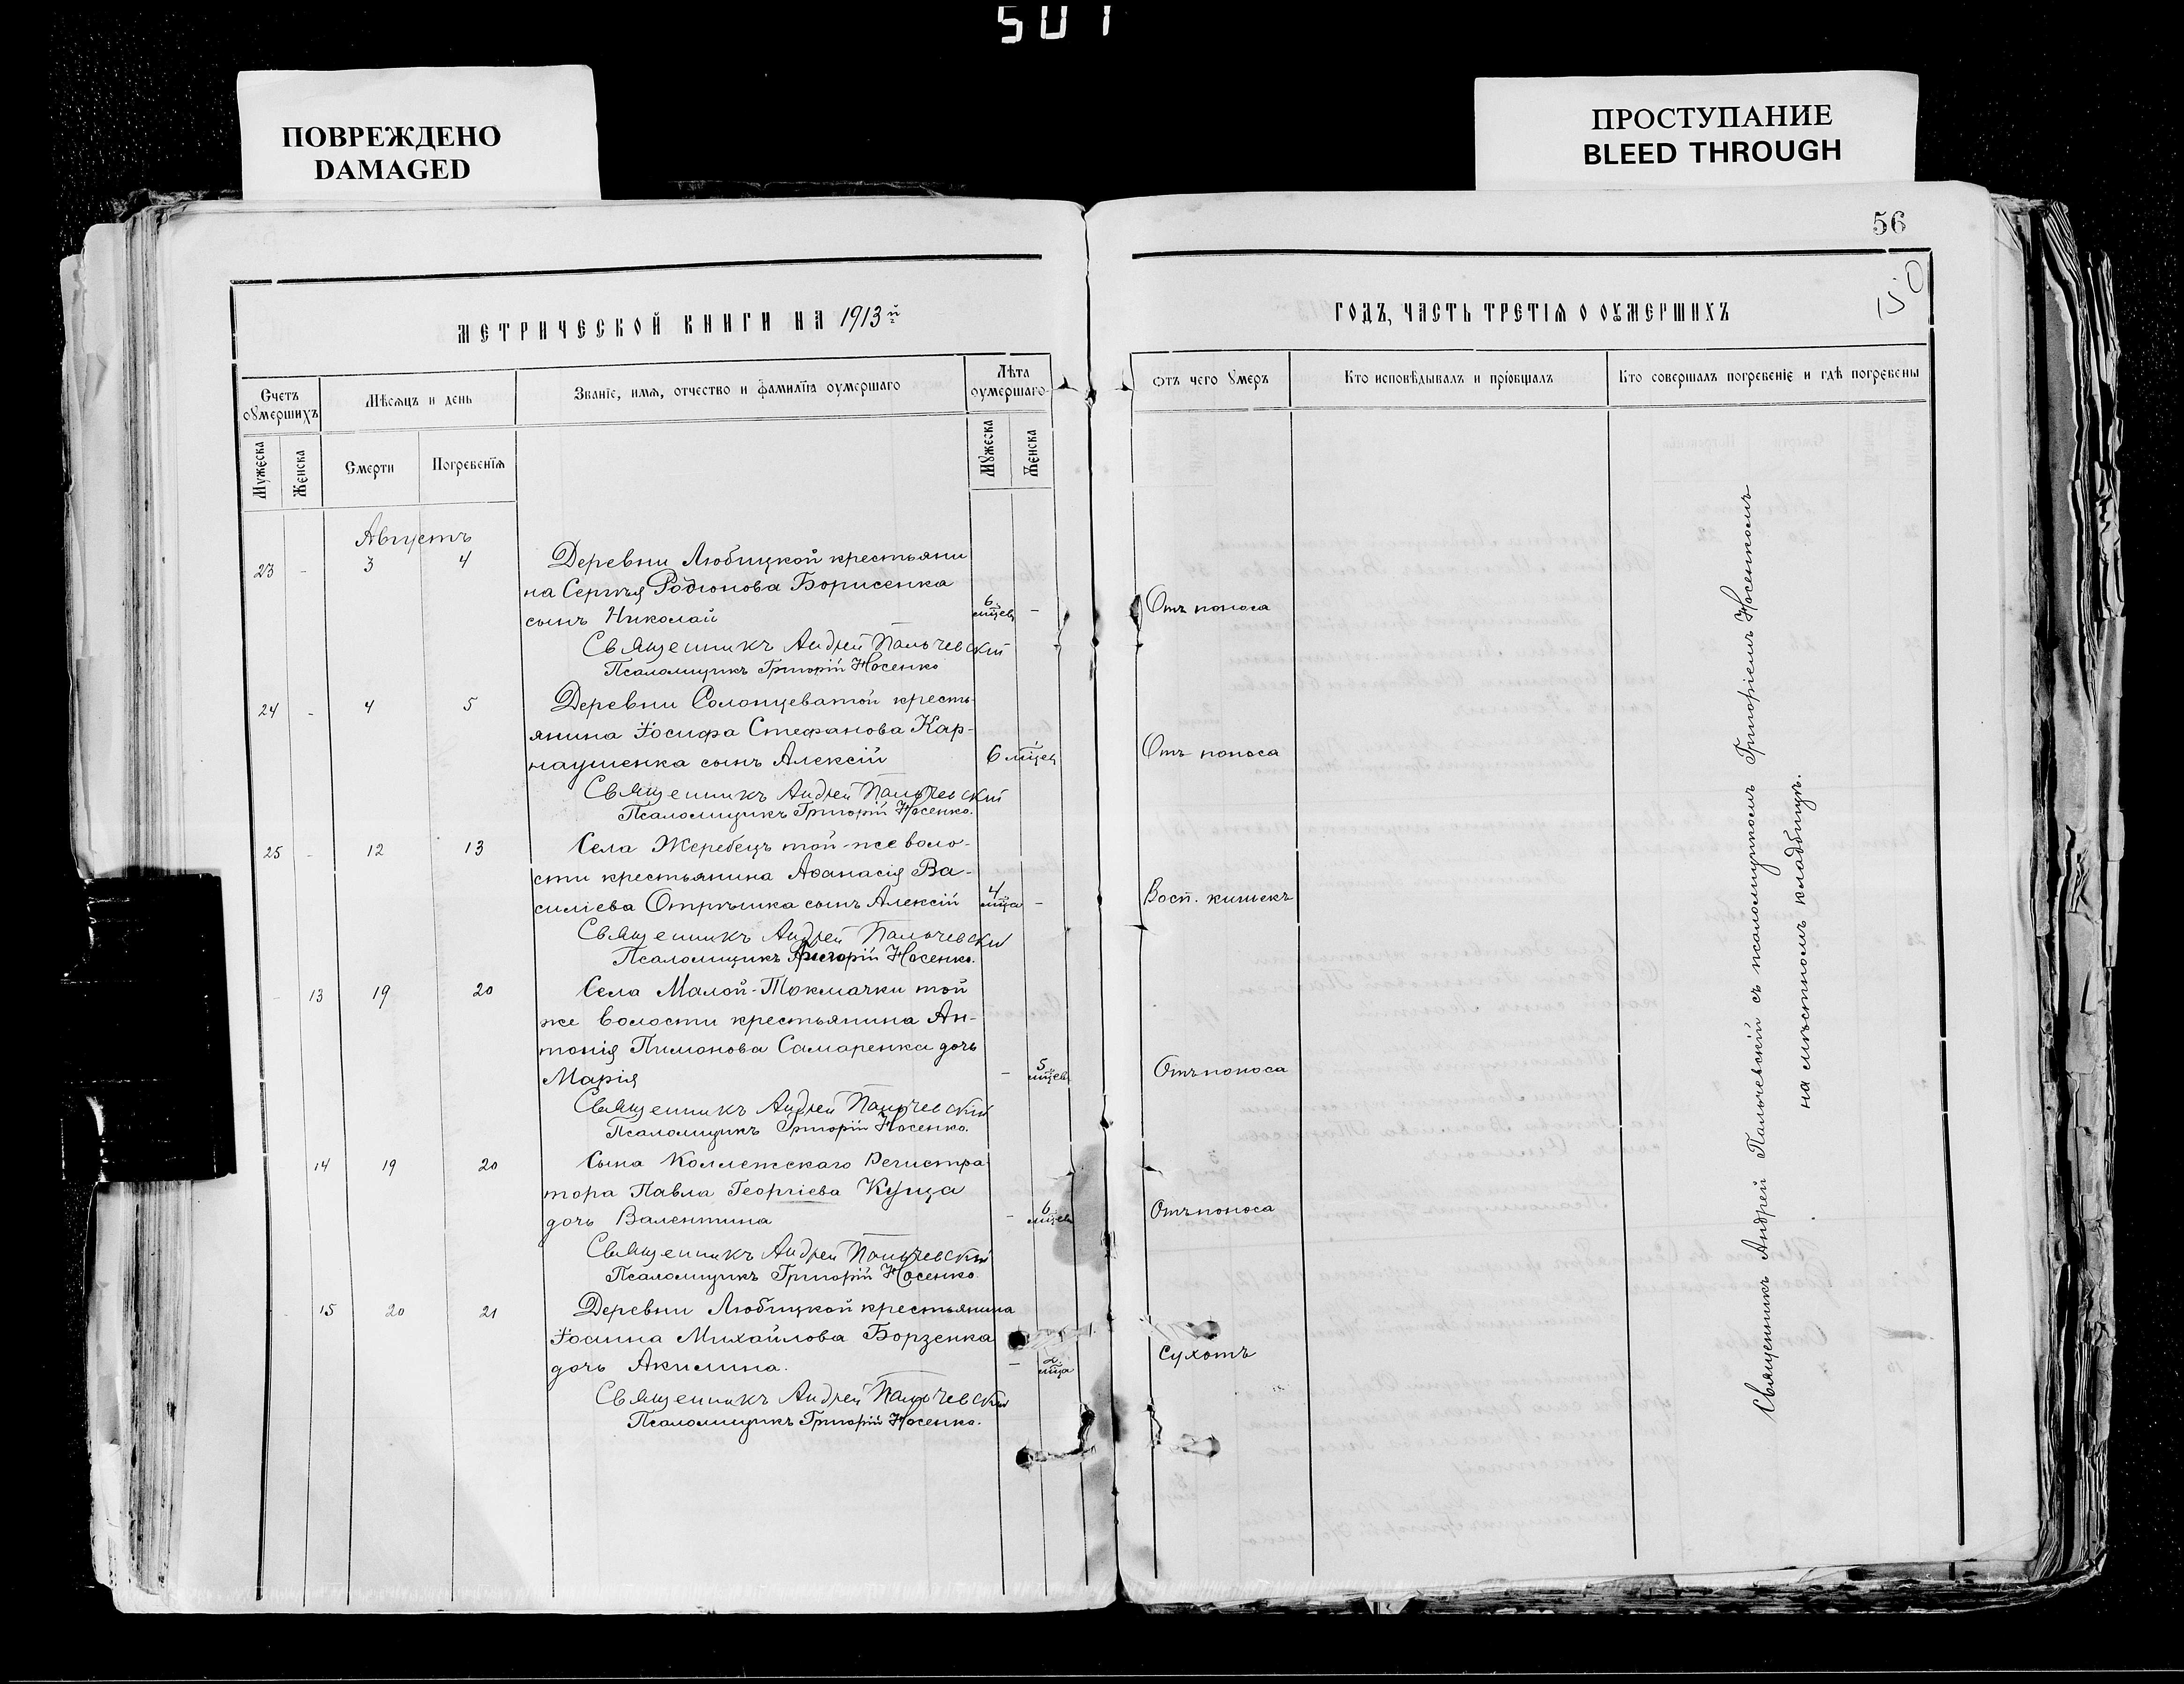 501
ПОВРЕЖДЕНО
DAMAGED
ПРОСТУПАНИЕ
BLEED THROUGH
56
150
МЕТРИЧЕСКОЙ КНИГИ НА 1913й
ГОДЪ, ЧАСТЬ ТРЕТІЯ О ОУМЕРШИХЪ
Счетъ оумершихъ
Мѣсяцъ и день
Званіе, имя, отчество и фамилія оумершаго
Лѣта оумершаго
Отъ чего умеръ
Кто исповѣдывалъ и пріобщалъ
Кто совершалъ погребеніе и гдѣ погребены
Мужеска
Женска
Смерти
Погребенія
Мужеска
Женска
Августъ
23 - 3 4 Деревни Любицкой крестьяни
на Сергѣя Родіонова Борисенка
сынъ Николай 6 мцевъ - Отъ поноса
Священникъ Андрей Пальчевскій
Псаломщикъ Григорій Носенко
24 - 4 5 Деревни Солонцеватой кресть-
янина Іосифа Стефанова Кар-
наушенка сынъ Алексій 6 мцев Отъ поноса
Священникъ Андрей Пальчевскій
Псаломщикъ Григорій Носенко.
25 - 12 13 Села Жеребецъ той-же воло-
сти крестьянина Аѳанасія Ва-
силіева Отрѣшка сынъ Алексій 4 мца - Восп. кишекъ
Священникъ Андрей Пальчевскій
Псаломщикъ Григорій Носенко.
- 13 19 20 Села Малой-Токмачки той
же волости крестьянина Ан-
тонія Пимонова Самаренка дочь
Марія - 5 мцевъ Отъ поноса
Священникъ Андрей Пальчевскій
Псаломщикъ Григорій Носенко.
14 19 20 Сына Коллежскаго Регистра
тора Павла Георгіева Куща
дочь Валентина - 6 мцевъ Отъ поноса
Священникъ Андрей Пальчевскій
Псаломщикъ Григорій Носенко.
- 15 20 21 Деревни Любицкой крестьянина
Іосина Михайлова Борзенка
дочь Акилина. - 2 мца Сухотъ
Священникъ Андрей Пальчевскій
Псаломщикъ Григорій Носенко.
Священникъ Андрей Пальчевскій съ псаломщикомъ Григоріемъ Носенкомъ
на мѣстномъ кладбищѣ.